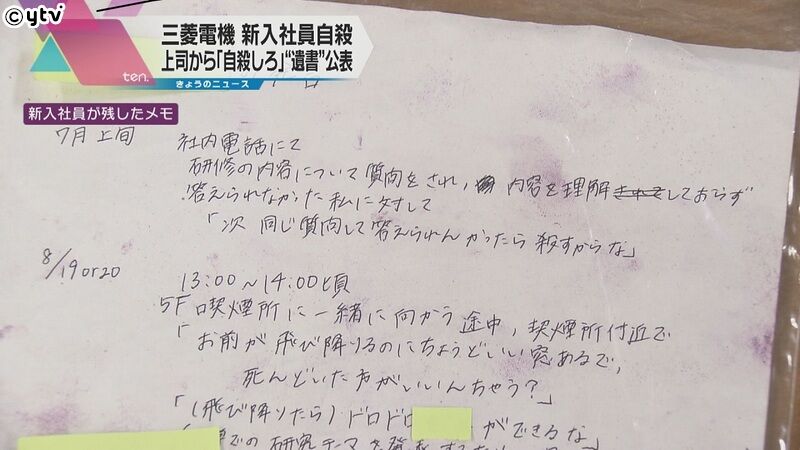 ©ytv
三菱電機 新入社員自殺
上司から「自殺しろ」“遺書”公表
ten.
きょうのニュース
新入社員が残したメモ
7月上旬
社内電話にて
研修の内容について質問をされ, 内容を理解しておらず
答えられなかった私に対して
「次 同じ質問して答えられんかったら殺すからな」
8/19 or 20
13:00〜14:00頃
5F 喫煙所に一緒に向かう途中, 喫煙所付近で
「お前が飛び降りるのにちょうどいい窓あるで,
死んどいた方がいいんちゃう?」
「(飛び降りたら)ドロドロ
ができるな」
での研究テーマを